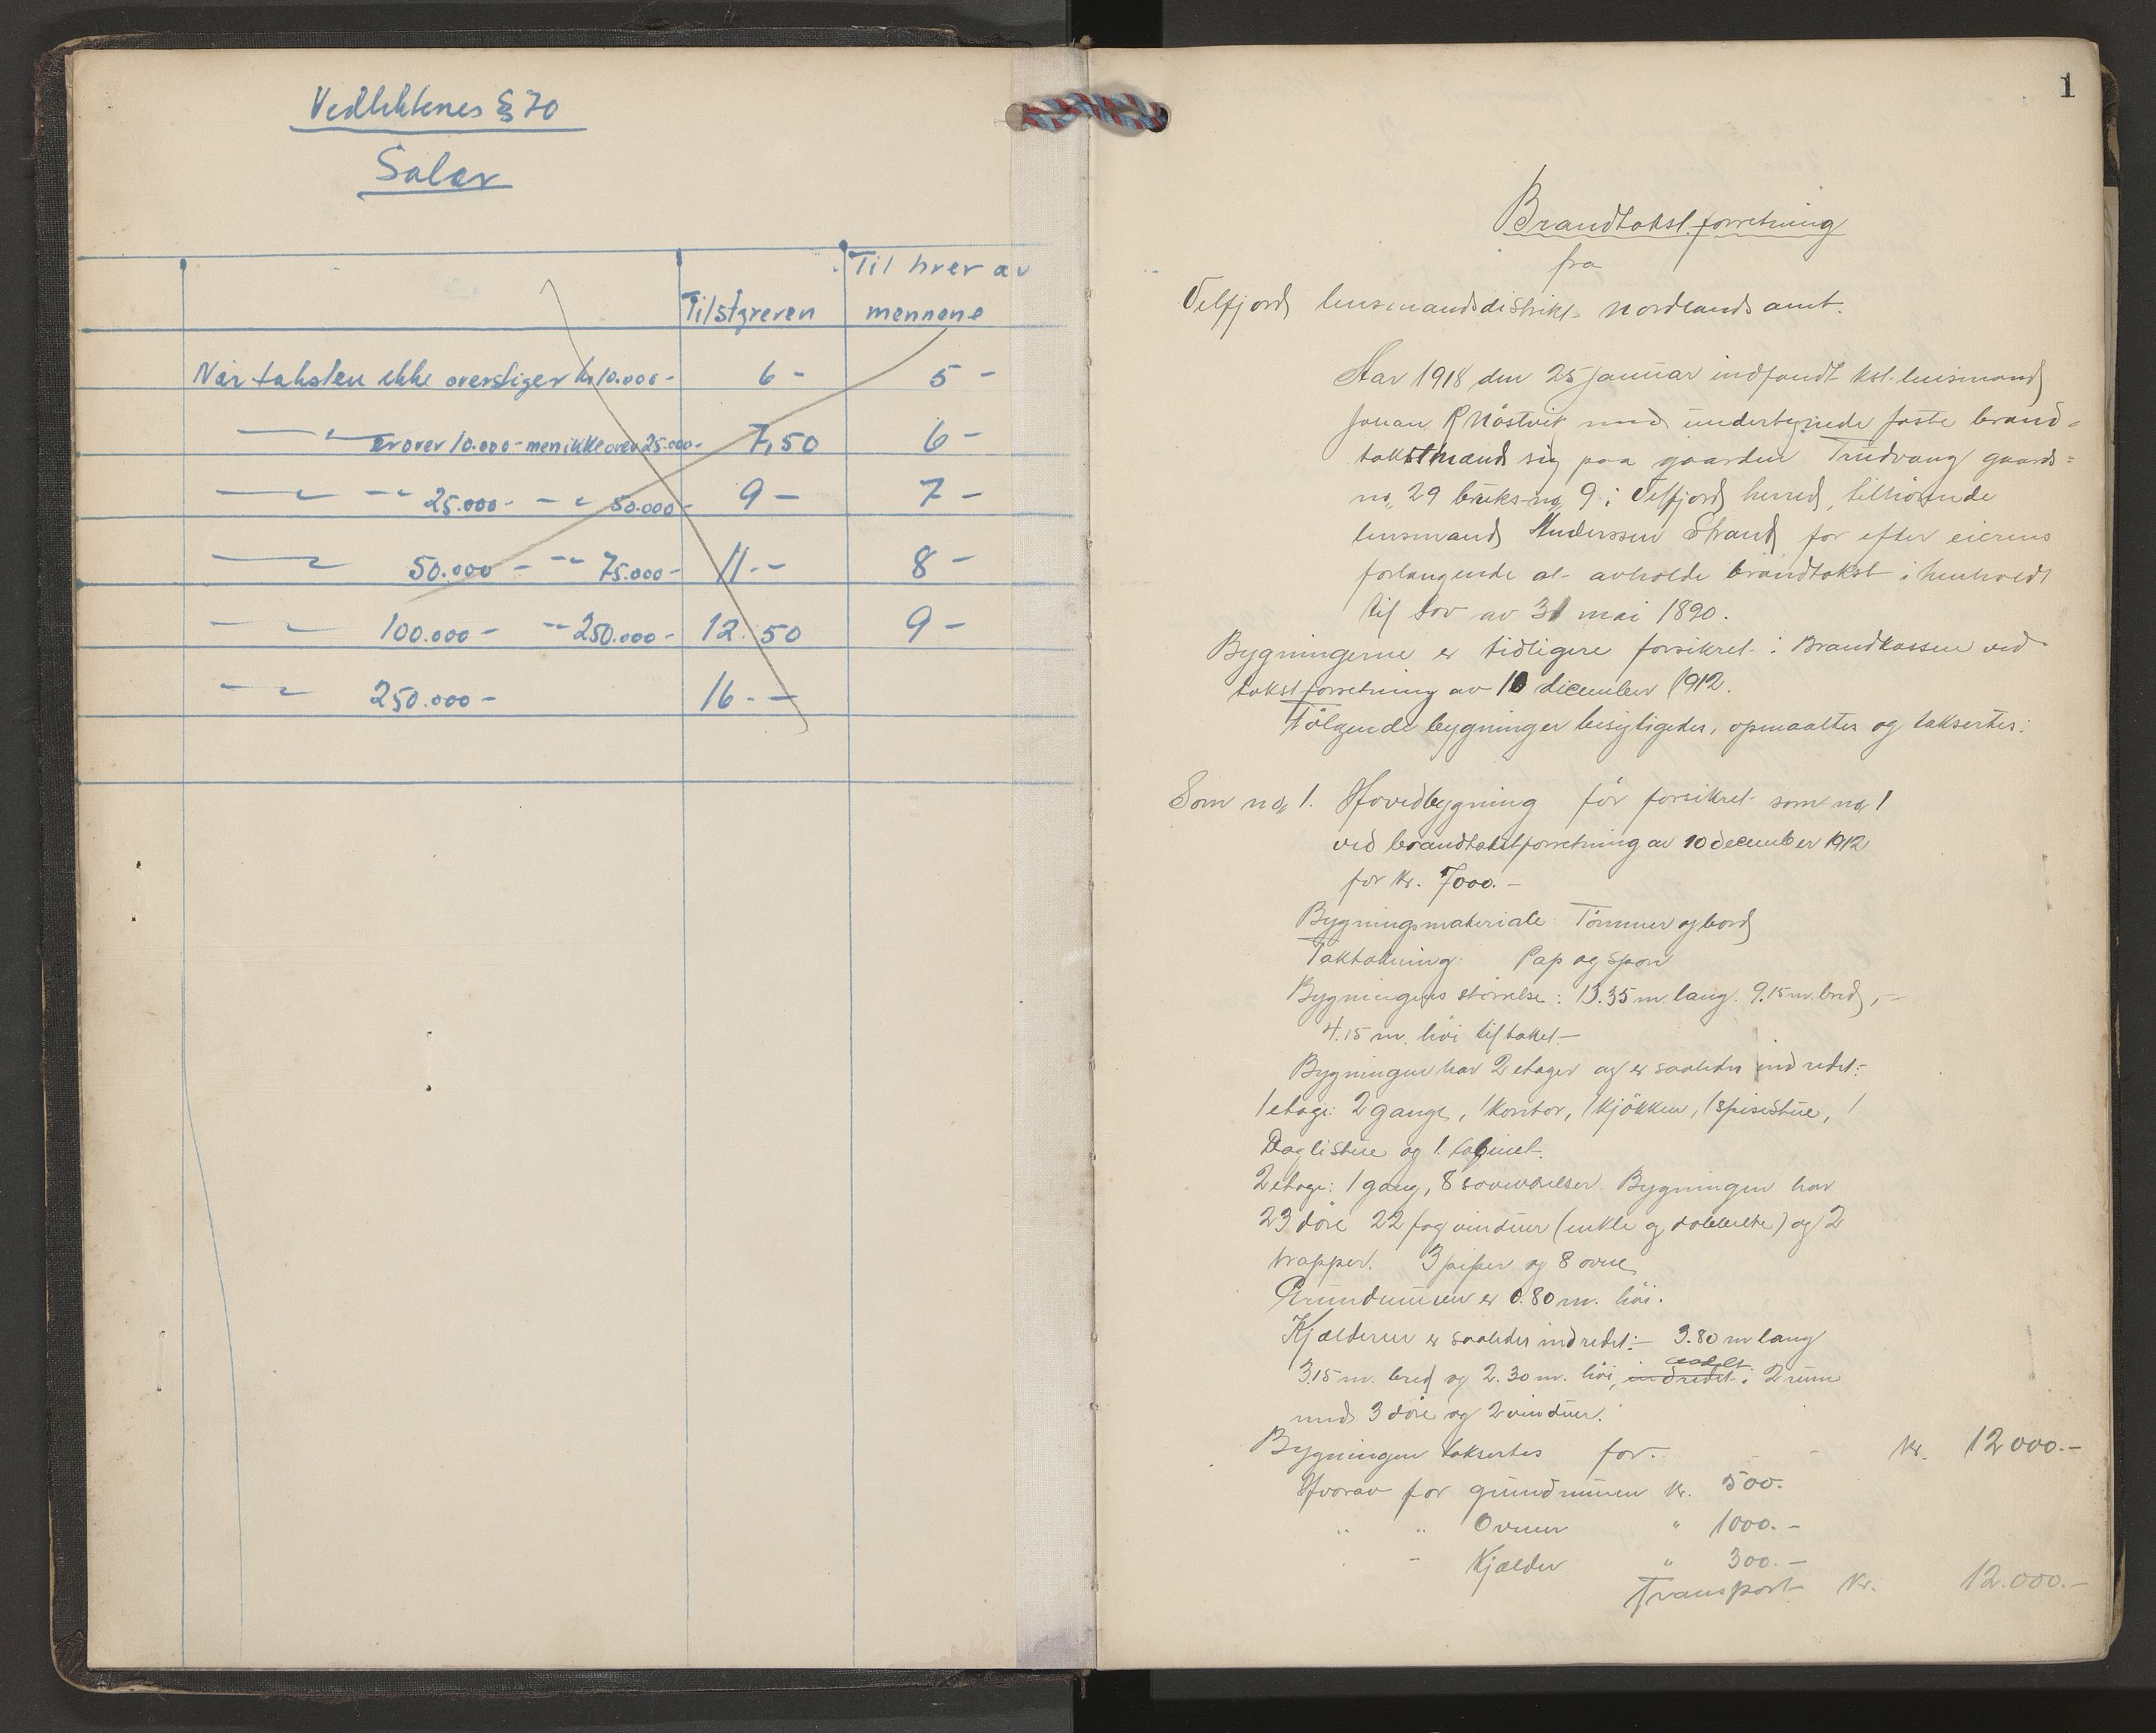 Vedtektenes § 70
Salær
Til styreren
Til hver av
mennene
Når taksten ikke overstiger kr 10.000- 6 - 5 -
er over 10.000- men ikke over 25.000- 7,50 6 -
25.000- 50.000- 9 - 7 -
50.000 - 75.000- 11.- 8 -
100.000 - 250.000- 12.50 9 -
250.000 - 16.-
1
Brandtakst forretning
fra
Velfjord lensmandsdistrikt Nordlands amt.
Aar 1918 den 25 januar indfandt kst. lensmand
Johan R Nøstvik med undertegnede faste brand-
takstmænd sig paa gaarden Trudvang gaards-
no, 29 bruks-no, 9 i Velfjord herred, tilhørende
lensmand Anderssen Strand for efter eierens
forlangende at avholde brandtakst i henhold
til Lov av 31 mai 1890.
Bygningerne er tidligere forsikret i Brandkassen ved
takstforretning av 10 december 1912.
Følgende bygninger besigtigedes, opmaaltes og taksertes:
Som no, 1. Hovedbygning før forsikret som no, 1
ved brandtakstforretning av 10 december 1912
for kr. 7000.-
Bygningsmateriale: Tømmer og bord
Taktækning: Pap og spon
Bygningens størrelse: 13.35 m. lang. 9.15 m. bred, -
4.15 m. høi til taket -
Bygningen har 2 etager og er saaledes indredet:-
1 etage: 2 gange, 1 kontor, 1 kjøkken, 1 spisestue, 1
Daglistue og 1. kabinet.
2 etage: 1 gang, 8 soveværelser. Bygningen har
23 døre 22 fag vinduer (enkle og dobbelte) og 2
trapper. 3 piper og 8 ovne
Grundmuren er 0.80 m. høi.
Kjælderen er saaledes indredet:- 3.80 m lang
avdelt
3.15 m. bred og 2.30 m. høi, indredet i 2 rum
med 3 døre og 2 vinduer.
Bygningen taksertes for. - kr. 12 000.-
Hvorav for grundmuren kr. 500.
" " Ovner " 1000.-
" - Kjælder " 300.-
Transport kr. 12.000.-